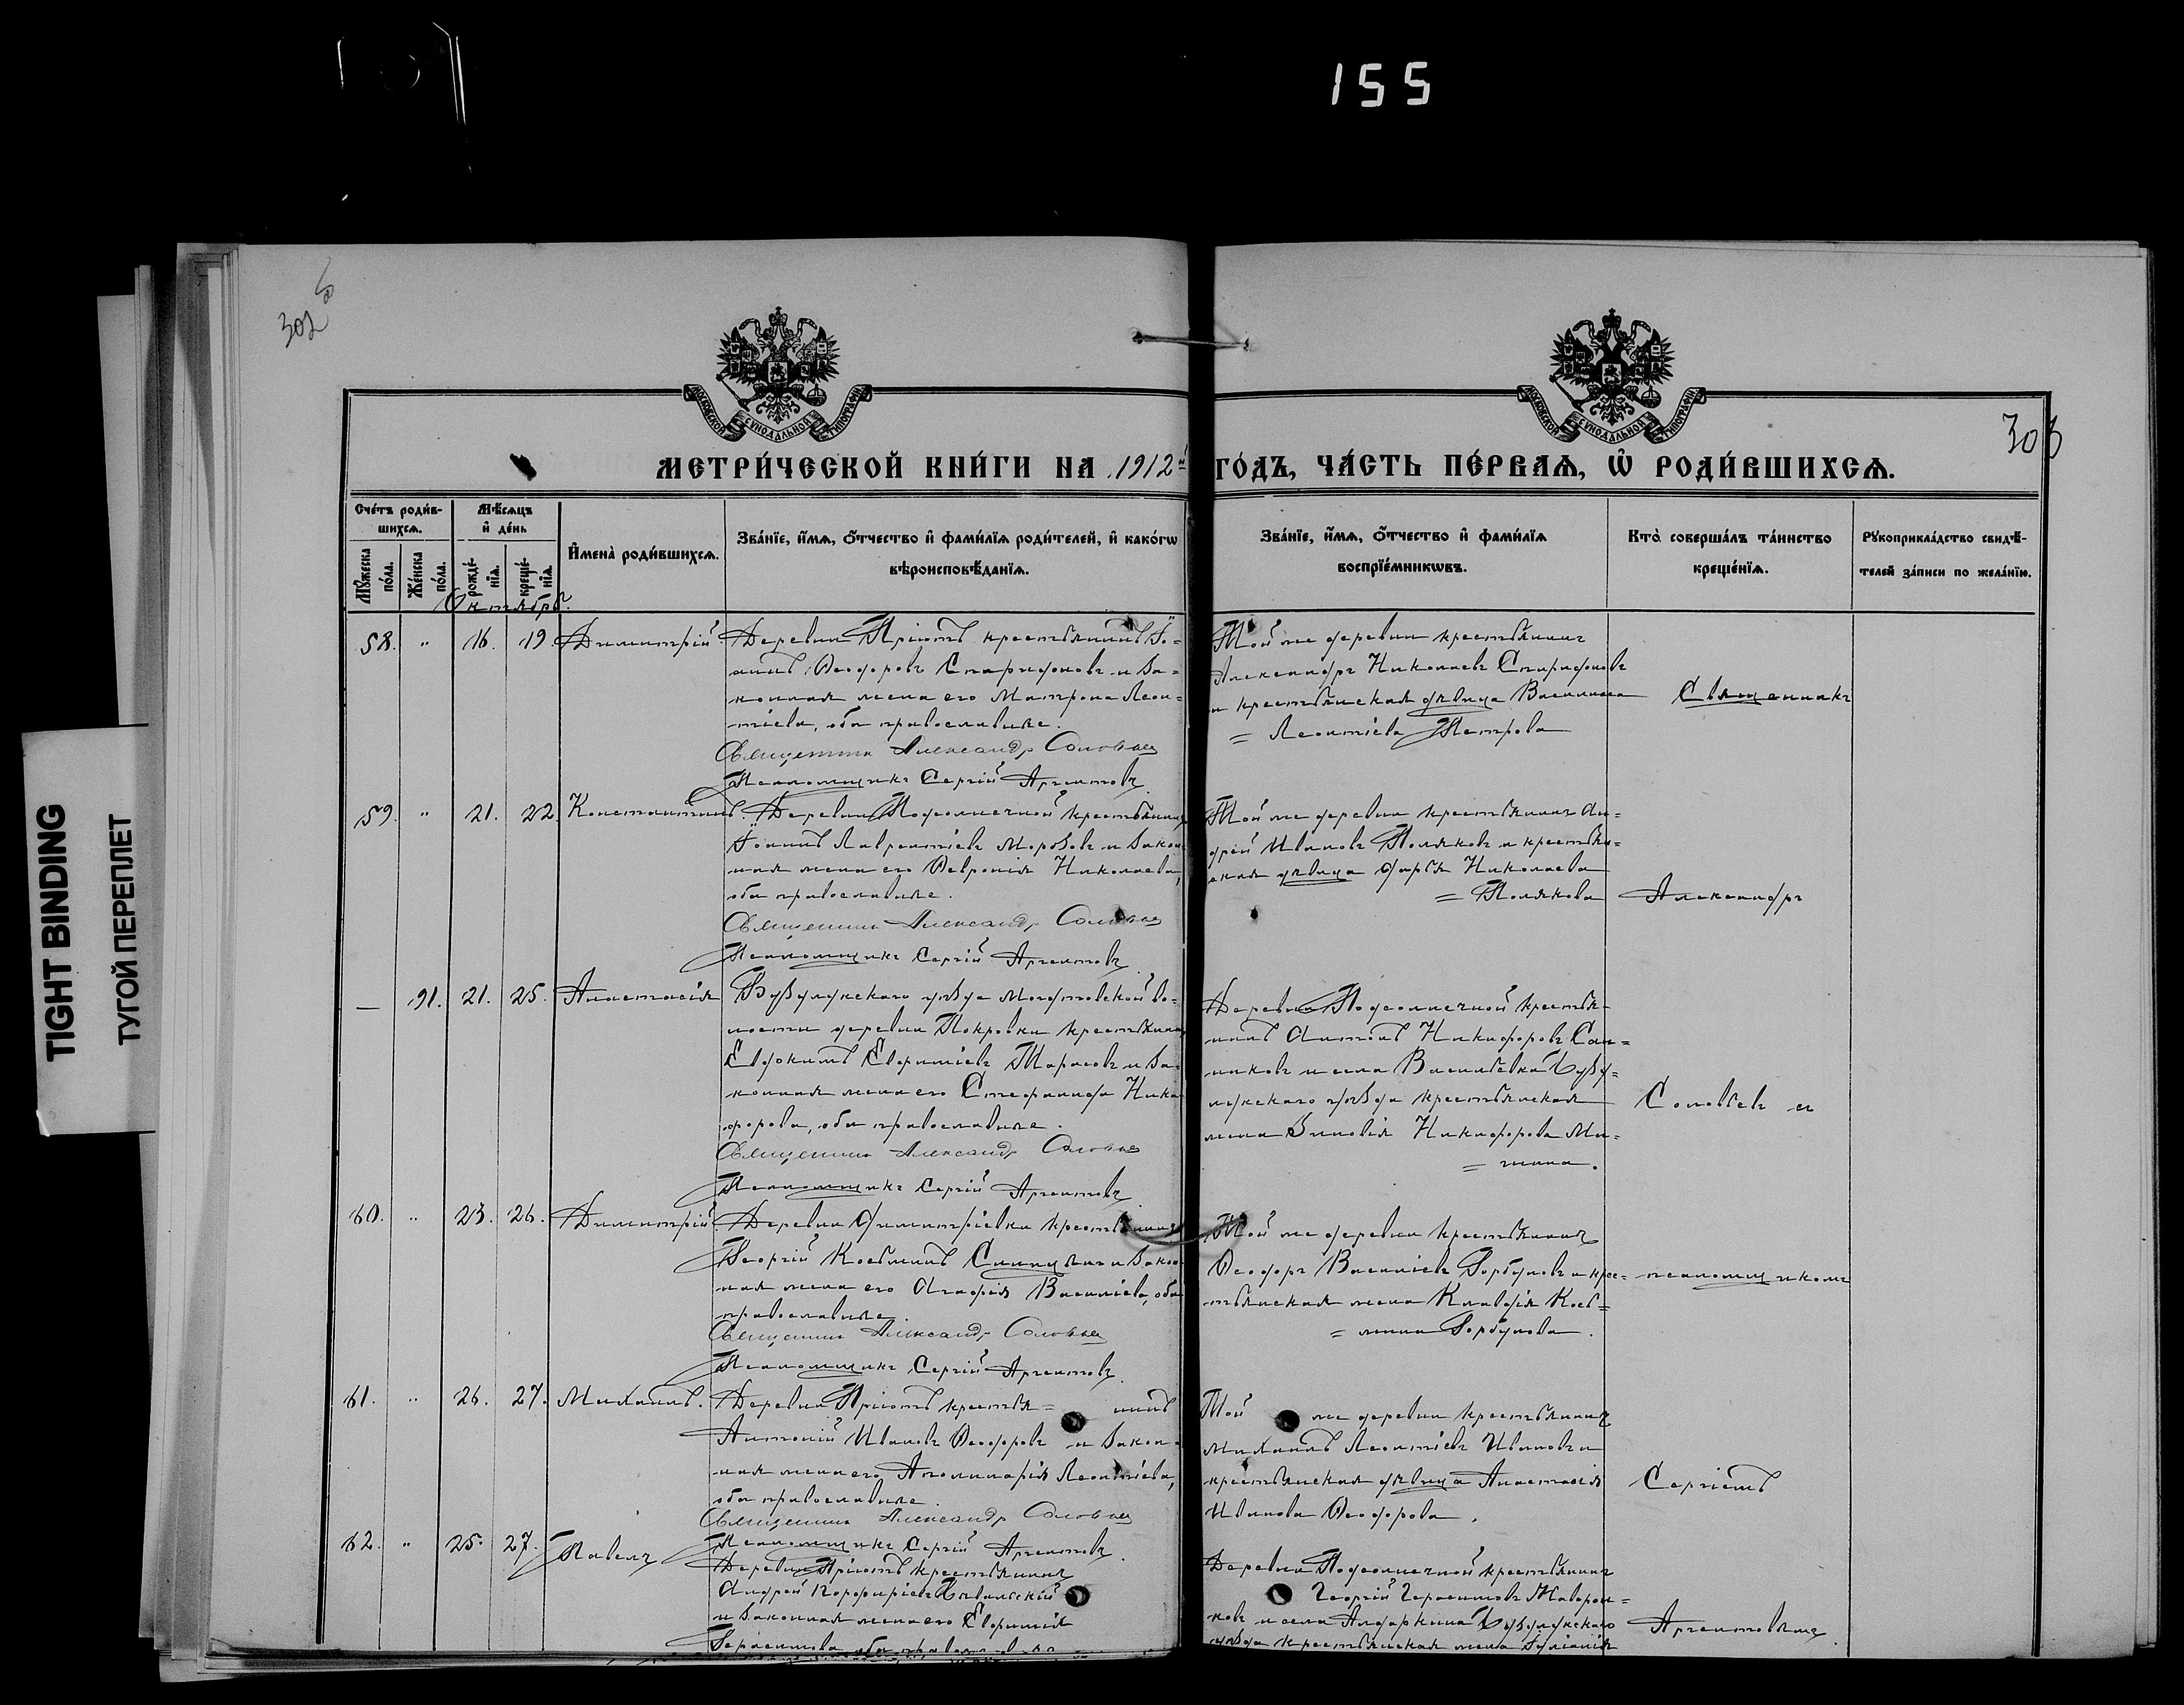 155
TIGHT BINDING
ТУГОЙ ПЕРЕПЛЕТ
302
303
МОСКОВСКОЙ СѴНОДАЛЬНОЙ ТИПОГРАФІИ
МОСКОВСКОЙ СѴНОДАЛЬНОЙ ТИПОГРАФІИ
МЕТРИ́ЧЕСКОЙ КНИ́ГИ НА 1912й ГО́ДЪ, ЧА́СТЬ ПЕ́РВАѦ, Ѽ РОДИ́ВШИХСѦ.
Сче́тъ роди́в-
шихсѧ.
Мꙋ́жеска по́ла.
Же́нска по́ла.
Мѣ́сѧцъ
и҆ де́нь
рожде́-
нїѧ.
креще́-
нїѧ.
И҆мена̀ роди́вшихсѧ.
Зва́нїе, и҆́мѧ, ѻ҆́тчество и҆ фами́лїѧ роди́телей, и҆ како́гѡ
вѣроисповѣ́данїѧ.
Зва́нїе, и҆́мѧ, ѻ҆́тчество и҆ фами́лїѧ
воспрїе́мникѡвъ.
Кто̀ соверша́лъ та́инство
креще́нїѧ.
Рꙋкоприкла́дство свидѣ́-
телей за́писи по жела́нїю.
Октябрь.
58. " 16. 19. Димитрій.
Деревни Пріютъ крестьянинъ Іо-
аннъ Ѳеодоровъ Спиридоновъ и за-
конная жена его Матрона Леон-
тіева, оба православные.
Священникъ Александр Соловьев
Псаломщикъ Сергій Аргентовъ.
Той же деревни крестьянинъ
Александръ Николаевъ Спиридоновъ
и крестьянская дѣвица Василисса
= Леонтіева Петрова
Священникъ
59. " 21. 22. Константинъ.
Деревни Подсолнечной крестьянинъ
Іоаннъ Лаврентіевъ Морозовъ и закон-
ная жена его Февронія Николаева,
оба православные.
Священникъ Александр Соловьев
Псаломщикъ Сергій Аргентовъ.
Той же деревни крестьянинъ Ан-
дрей Ивановъ Поляковъ и крестьян-
ская дѣвица Дарья Николаева
= Полякова
Александръ
— 91. 21. 25. Анастасія
Бузулукскаго уѣзда Могутовской во-
лости деревни Покровки крестьянинъ
Евдокимъ Евфиміевъ Тарасовъ и за-
конная жена его Стефанида Ники-
форова, оба православные.
Священникъ Александр Соловьев
Псаломщикъ Сергій Аргентовъ.
Деревни Подсолнечной крестья-
нинъ Антонъ Никифоровъ
и села Васильевка Бузу-
лукскаго уѣзда крестьянская
жена Зиновія Никифорова
Соловьевъ съ
60. " 23. 26. Димитрій.
Деревни Димитріевки крестьянинъ
Георгій Косьминъ и закон-
ная жена его Агафія Васильева, оба
православные.
Священникъ Александр Соловьев
Псаломщикъ Сергій Аргентовъ.
Той же деревни крестьянинъ
Ѳеодоръ Васильевъ Горбуновъ и кре-
стьянская жена Клавдія Кось-
= мина Горбунова.
псаломщикомъ
61. " 26. 27. Михаилъ.
Деревни Пріютъ крестья= нинъ
Антоній Ивановъ Ѳеодоровъ и закон-
ная жена его Аполлинарія Леонтіева,
оба православные.
Священникъ Александр Соловьев
Псаломщикъ Сергій Аргентовъ.
Той же деревни крестьянинъ
Михаилъ Леонтіевъ Ивановъ и
крестьянская дѣвица Анастасія
Иванова Ѳеодорова.
Сергіемъ
62. " 25. 27. Павелъ
Деревни Пріютъ крестьянинъ
Андрей Порфиріевъ
и законная жена его Евфимія
Герасимова оба православные
Деревни Подсолнечной крестьянинъ
Георгій Герасимовъ Жаворон-
ковъ и села Алдаркина Бузулукскаго
уѣзда крестьянская жена Іуліанія
Аргентовымъ.